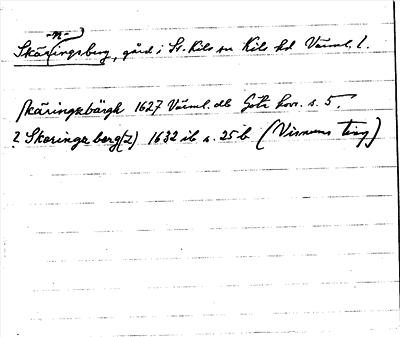 -n-
Skäringsberg, gård i St. Kils sn Kils hd Värml. l.
Skäringsbärgh 1627 Värml. db Göta hovr. s. 5.
? Skeringzberg(z) 1632 ib s. 25 b (Visnums ting)